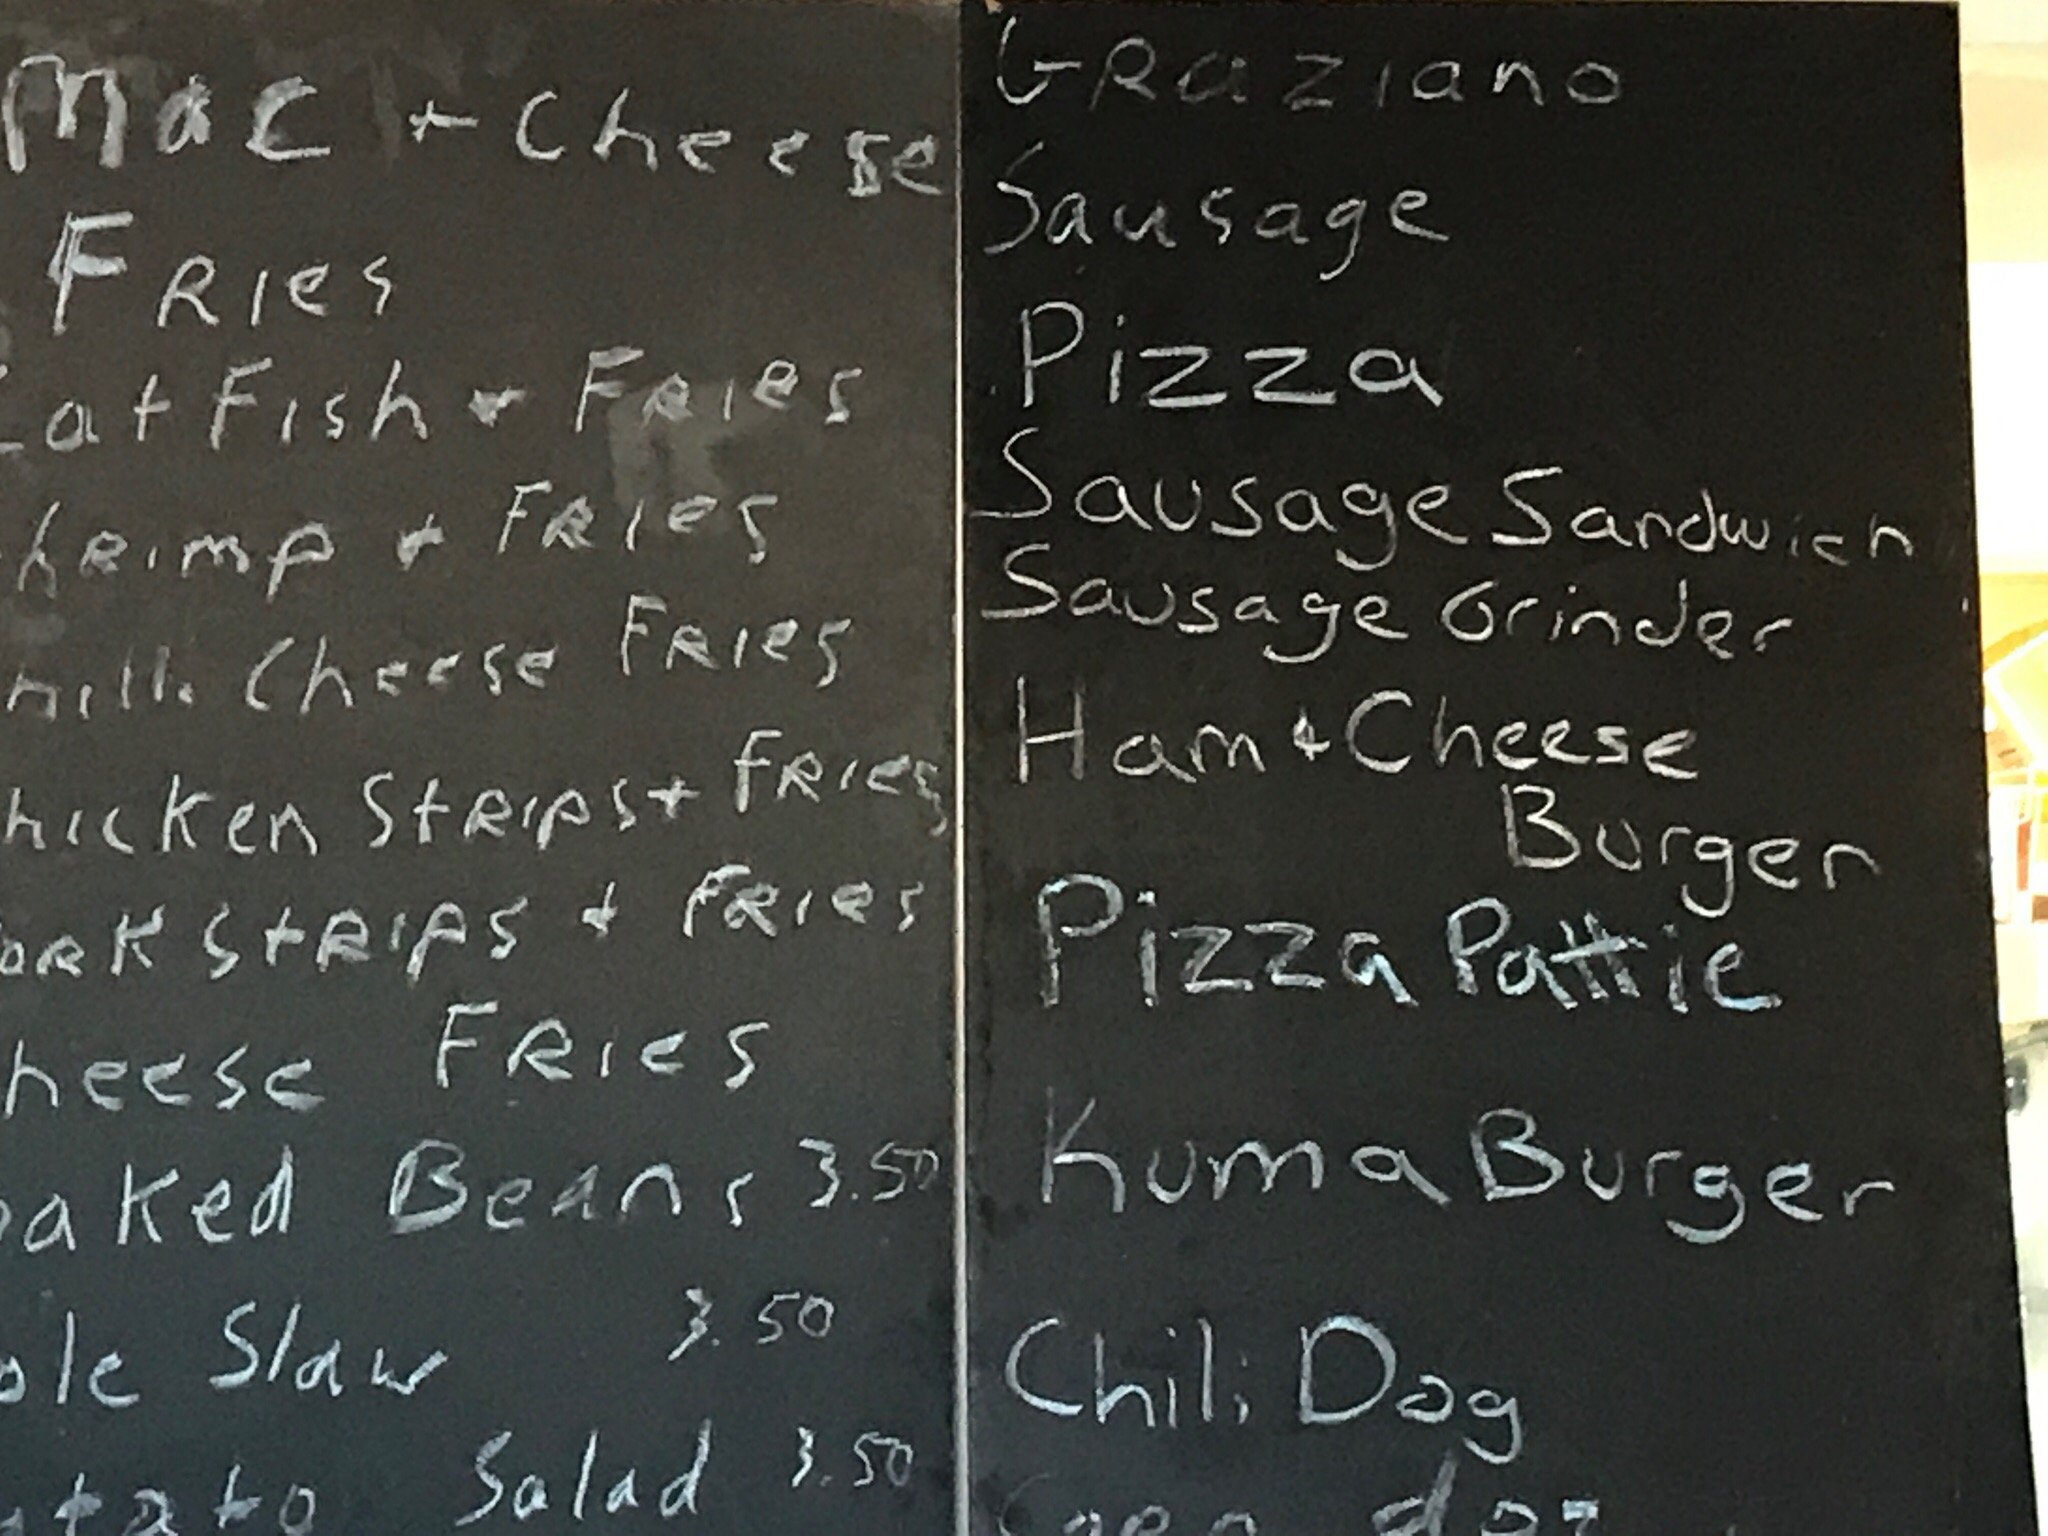 Mac + Cheese
Fries
Cat Fish + Fries
hrimp + Fries
hilli Cheese Fries
hicken Strips + Fries
ork Strips + Fries
heese Fries
baked Beans 3.50
ole Slaw 3.50
otato Salad 3.50
Graziano
Sausage
Pizza
Sausage Sandwich
Sausage Grinder
Ham + Cheese
Burger
Pizza Pattie
Kuma Burger
Chili Dog
Corn dog